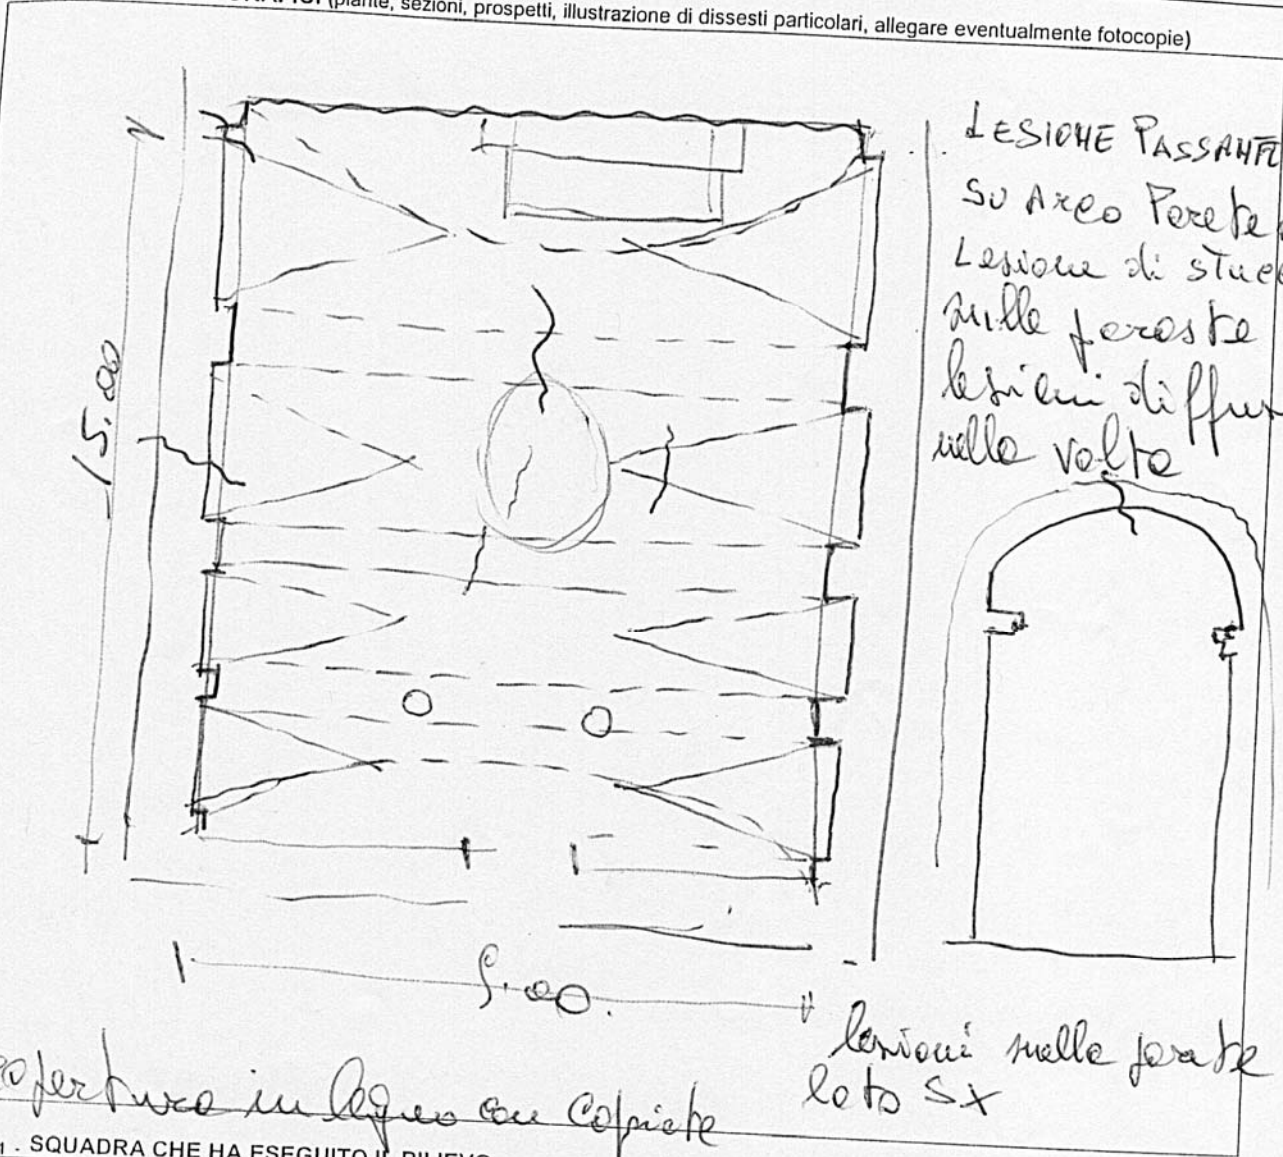 (piante, sezioni, prospetti, illustrazione di dissesti particolari, allegare eventualmente fotocopie)
LESIONE PASSANTE
SU ARCO Parete
Lesione di stuc
sulle
lesioni diffus
nella volta
15.00
lesioni nella parete
lato SX
copertura in legno con Capriate
1 . SQUADRA CHE HA ESEGUITO IL RILIEVO